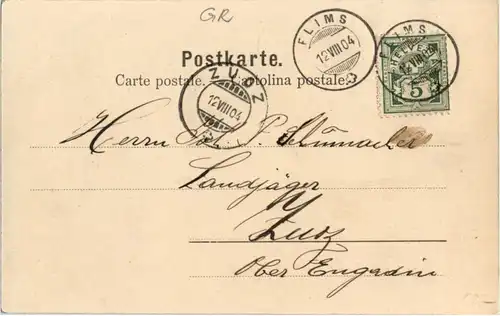 GR
Postkarte.
Carte postale. Cartolina postale.
FLIMS
12.VIII.04
FLIMS
HELVETIA
5
ZUOZ
12.VIII.04
Herrn P. Schumacher
Landjäger
Zuoz
Ober Engadin